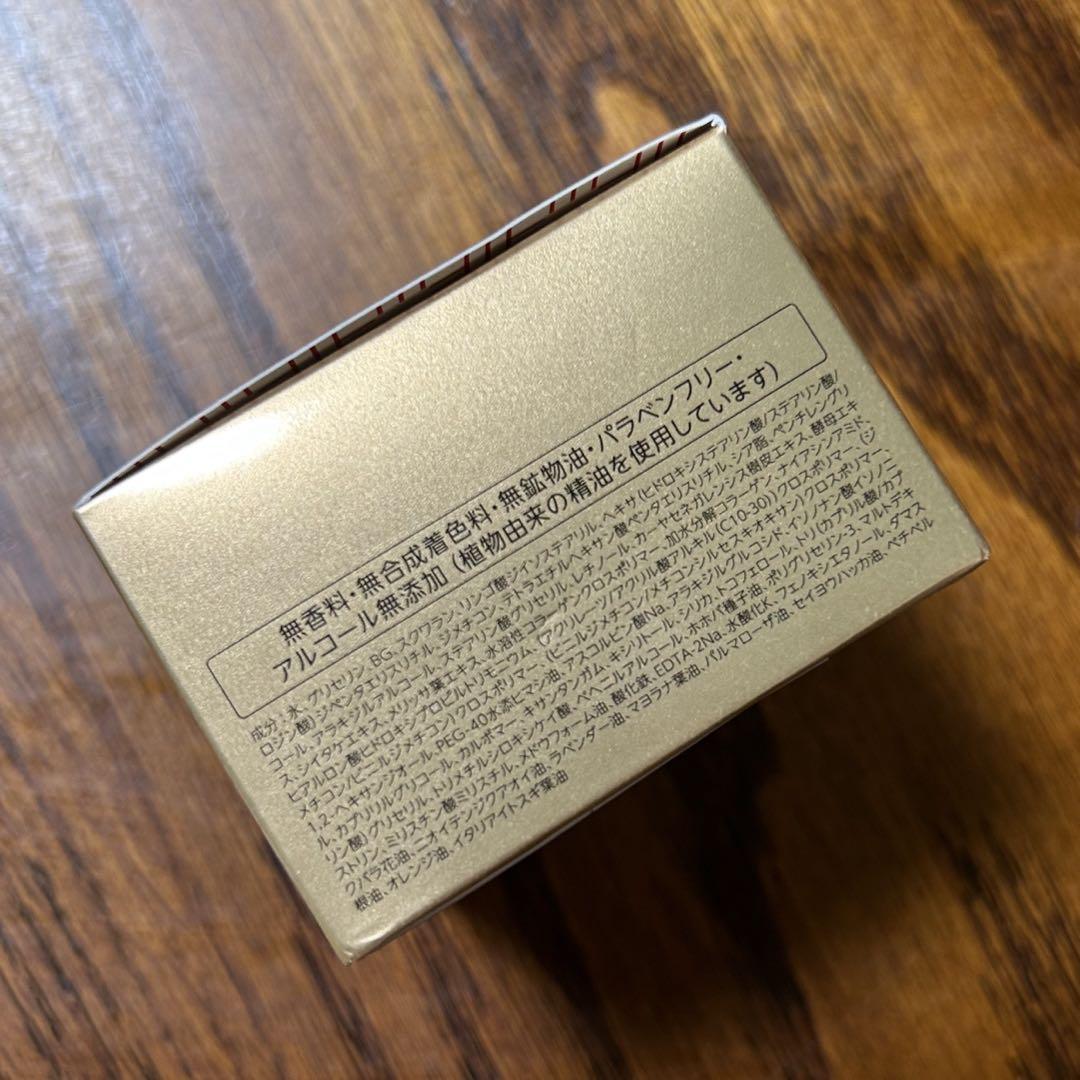 無香料・無合成着色料・無鉱物油・パラベンフリー・
アルコール無添加(植物由来の精油を使用しています)
成分:水、グリセリン、BG、スクワラン、リンゴ酸ジイソステアリル、ヘキサ(ヒドロキシステアリン酸/ステアリン酸/
ロジン酸)ジペンタエリスリチル、ジメチコン、テトラエチルヘキサン酸ペンタエリスリチル、シア脂、ペンチレングリ
コール、アラキジルアルコール、ステアリン酸グリセリル、レチノール、カーヤセネガレンシス樹皮エキス、酵母エキ
ス、シイタケエキス、メリッサ葉エキス、水溶性コラーゲンクロスポリマー、加水分解コラーゲン、ナイアシンアミド、
ヒアルロン酸ヒドロキシプロピルトリモニウム、(アクリレーツ/アクリル酸アルキル(C10-30))クロスポリマー、(ジ
メチコン/ビニルジメチコン)クロスポリマー、(ビニルジメチコン/メチコンシルセスキオキサン)クロスポリマー、
1,2-ヘキサンジオール、PEG-40水添ヒマシ油、アスコルビン酸Na、アラキジルグルコシド、イソノナン酸イソノニ
ル、カプリリルグリコール、カルボマー、キサンタンガム、キシリトール、シリカ、トコフェロール、トリ(カプリル酸/カプ
リン酸)グリセリル、トリメチルシロキシケイ酸、ベヘニルアルコール、ホホバ種子油、ポリグリセリン-3、マルトデキ
ストリン、ミリスチン酸ミリスチル、メドウフォーム油、酸化鉄、EDTA-2Na、水酸化K、フェノキシエタノール、ダマス
クバラ花油、ニオイテンジクアオイ油、ラベンダー油、マヨラナ葉油、パルマローザ油、セイヨウハッカ油、ベチベル
根油、オレンジ油、イタリアイトスギ葉油